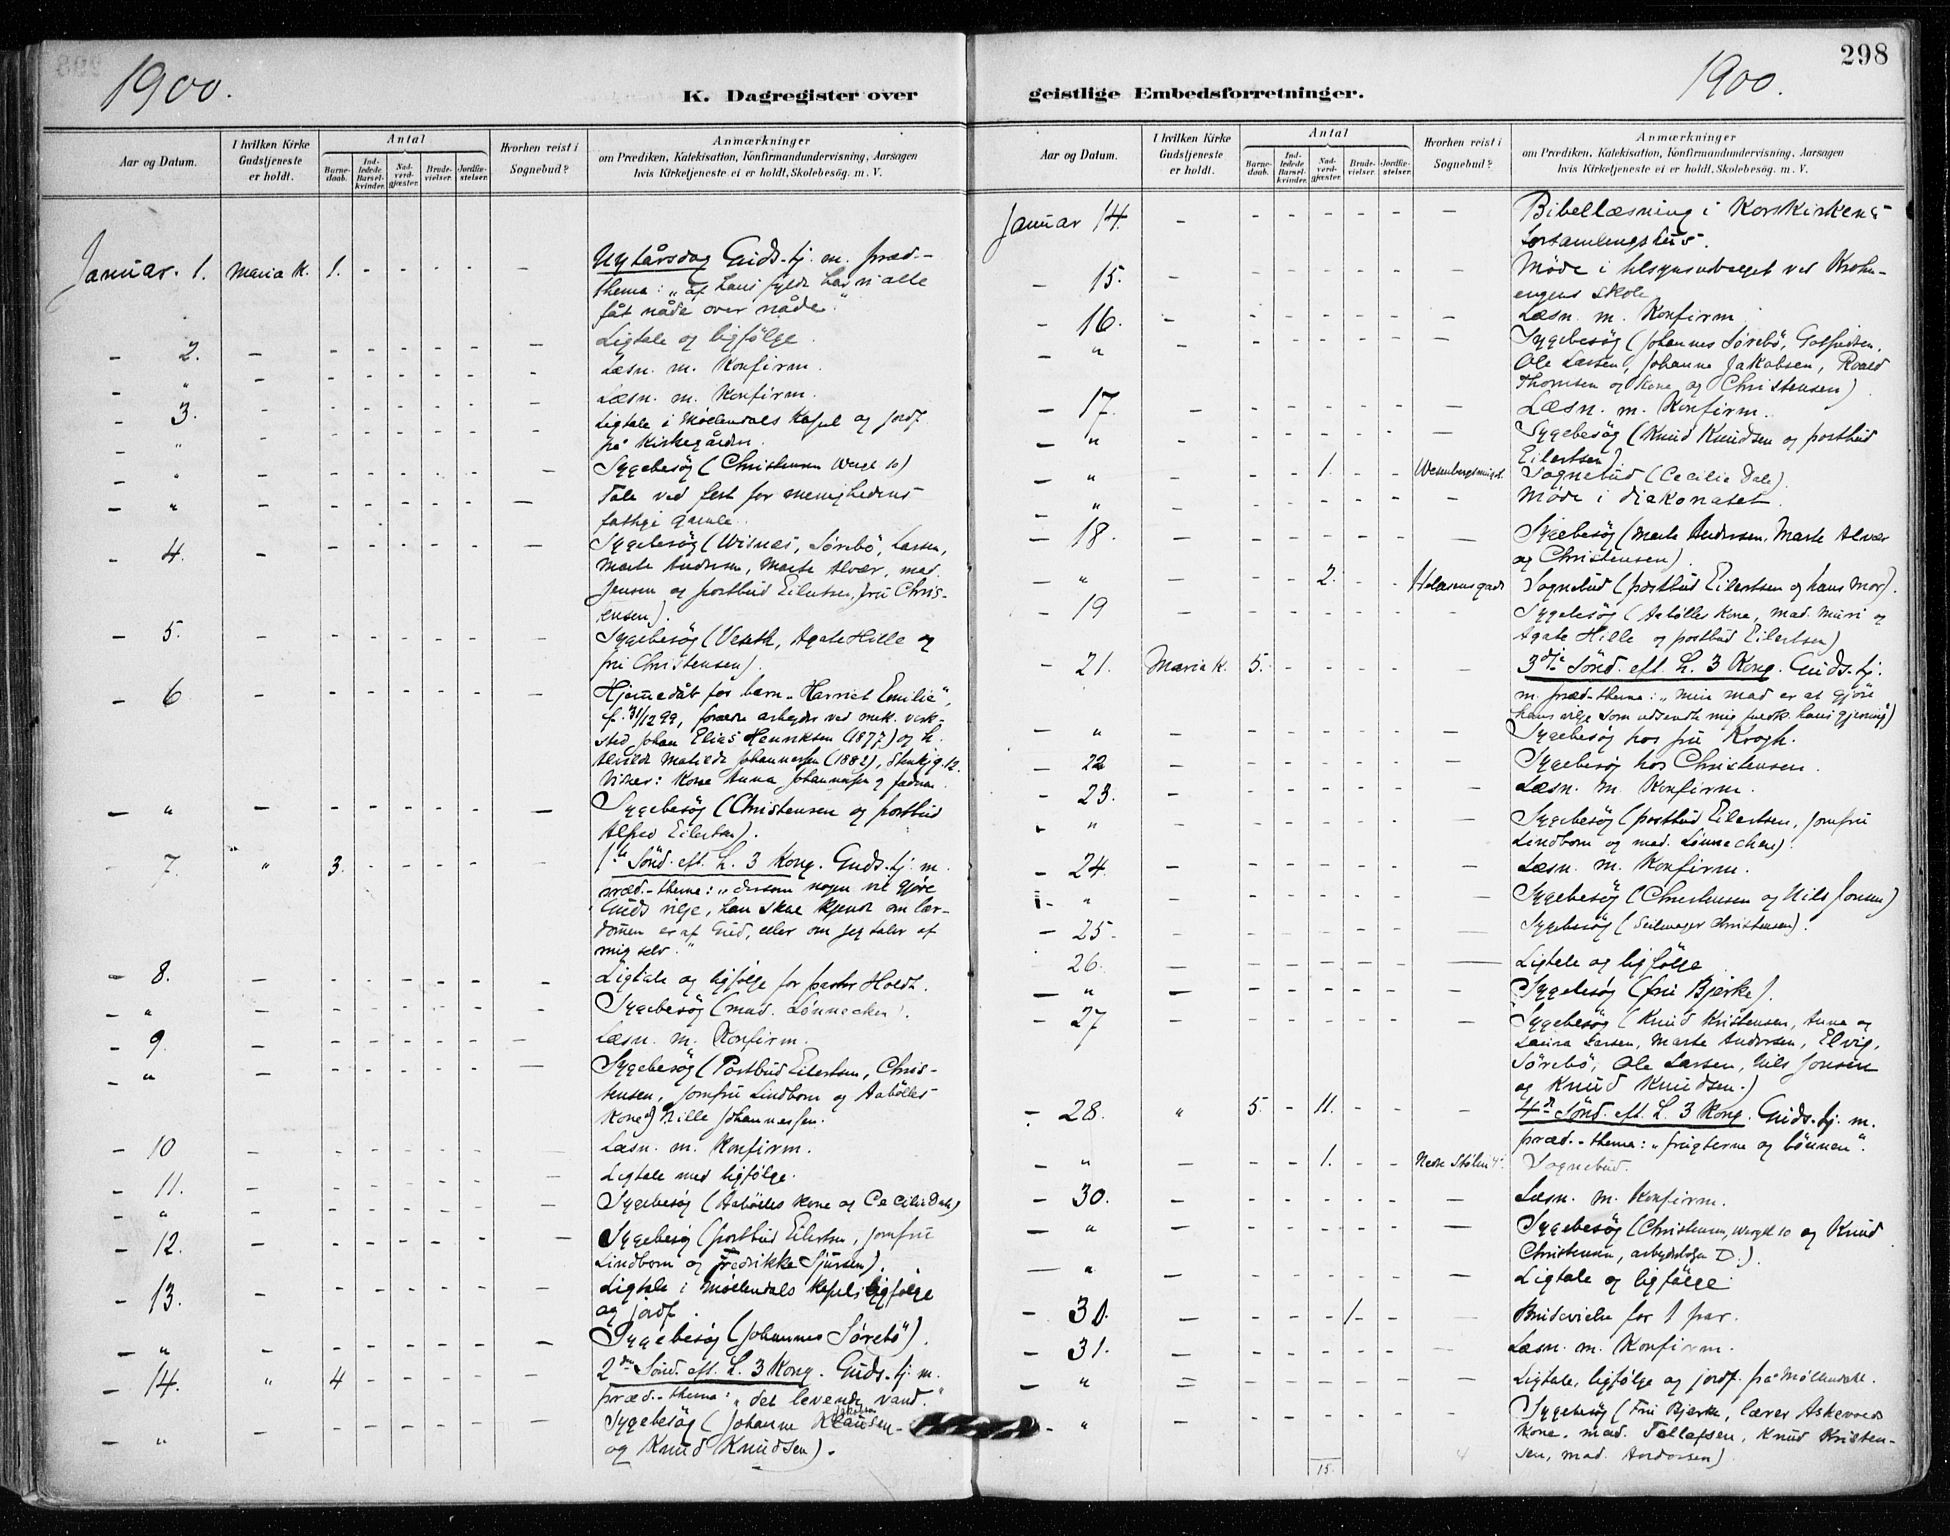 298
1900.
K. Dagregister over
Aar og Datum.
I hvilken Kirke Gudstjeneste er holdt.
Antal
Barnedaab.
Indledede Barselkvinder.
Nadverdgjæster.
Brudevielser.
Jordfæstelser.
Hvorhen reist i Sognebud?
Anmærkninger
om Prædiken, Katekisation, Konfirmandundervisning, Aarsagen
hvis Kirketjeneste ei er holdt, Skolebesøg. m. V.
Januar. 1. Maria K. 1. - - - - - Nytårsdag Guds-tj. m. præd.-
thema: „af hans fylde har vi alle
fåt nåde over nåde."
- 2. - - - - - - - Ligtale og ligfölge.
- " - - - - - - - Læsn. m. Konfirm.
- 3. - - - - - - - Læsn. m. Konfirm.
- " - - - - - - - Ligtale i Møllendals Kapel og jordf.
på Kirkegården.
- " - - - - - - - Sygebesøg (Christensen Wergl 10)
- " - - - - - - - Tale ved fest for menighedens
fattige gamle.
- 4. - - - - - - - Sygebesøg (Wisnes, Sørebö, Larsen,
Marte Andersen, Marte Alvær, mad.
Jensen og postbud Eilertsen, fru Chris-
tensen).
- 5. - - - - - - - Sygebesøg (Veseth, Agate Hille og
fru Christensen).
- 6 - - - - - - - Hjemmedåb for barn „Harriet Emilie",
f. 31/12 99, forældre arbejder ved mek. verk-
sted Johan Elias Henriksen (1877) og h.
Alvilde Matilde Johannessen (1882), Stenkjg. 12.
Vidner: Kone Anna Johannessen og faderen.
- " - - - - - - - Sygebesøg (Christensen og postbud
Alfred Eilertsen).
- 7. " 3. - - - - - 1ste Sönd. eft. H. 3 Kong. Guds-tj. m.
præd.-thema: „dersom nogen vil gjøre
Guds vilje, han skal kjende om lær-
dommen er af Gud, eller om jeg taler af
mig selv."
- 8. - - - - - - - Ligtale og ligfølge for pastor Holdt.
- " - - - - - - - Sygebesøg (mad. Lønnecken).
- 9. - - - - - - - Læsn. m. Konfirm.
- " - - - - - - - Sygebesøg (Postbud Eilertsen, Chris-
tensen, jomfru Lindbom og Aabölles
Kone og Nille Johannessen.
- 10 - - - - - - - Læsn. m. Konfirm.
- 11. - - - - - - - Ligtale med ligfølge.
- " - - - - - - - Sygebesøg (Aabölles Kone og Cecilie Dale)
- 12. - - - - - - - Sygebesøg (postbud Eilertsen, jomfru
Lindbom og Fredrikke Sjursen).
- 13. - - - - - - - Ligtale i Møllendals Kapel, ligfølge
og jordf.
- " - - - - - - - Sygebesøg (Johannes Sørebö).
- 14. " 4 - - - - - 2den Sönd. eft. H. 3 Kong. Guds-tj. m.
præd.-thema: „det levende vand."
- " - - - - - - - Sygebesøg (Johanne Klausen
og Knud Knudsen).
1900.
geistlige Embedsforretninger.
Aar og Datum.
I hvilken Kirke Gudstjeneste er holdt.
Antal
Barnedaab.
Indledede Barselkvinder.
Nadverdgjæster.
Brudevielser.
Jordfæstelser.
Hvorhen reist i Sognebud?
Anmærkninger
om Prædiken, Katekisation, Konfirmandundervisning, Aarsagen
hvis Kirketjeneste ei er holdt, Skolebesøg. m. V.
Januar 14. - - - - - - - Bibellæsning i Korskirkens
forsamlingshus.
- 15. - - - - - - - Møde i tilsynsudvalget ved Krohn-
engens skole
- 16. - - - - - - - Læsn. m. Konfirm
- " - - - - - - - Sygebesøg (Johannes Sørebö,
Ole Larsen, Johanne Jakobsen, Roald
Thomsen og Kone, og Christensen)
- 17. - - - - - - - Læsn. m. Konfirm.
- " - - - - - - - Sygebesøg (Knud Knudsen og postbud
Eilertsen)
- " - - - 1. - - Wesenbergsmuget. Sognebud (Cecilie Dale)
- " - - - - - - - Møde i diakonatet
- 18. - - - - - - - Sygebesøg (Marte Andersen, Marte Alvær
og Christensen)
- " - - - 2. - - Sognebud (postbud Eilertsen og hans mor).
- 19 - - - - - - - Sygebesøg (Aabölles Kone, mad. Muri og
Agate Hille og postbud Eilertsen)
- 21. Maria K. 5. - - - - - 3dje Sönd. eft. H. 3 Kong. Guds-tj.
m. præd-thema: „min mad er at gjøre
hans vilje som udsendte mig fuldk. hans gjerning")
- " - - - - - - - Sygebesøg hos fru Krogh.
- 22 - - - - - - - Sygebesøg hos Christensen.
- 23. - - - - - - - Læsn. m. Konfirm.
- " - - - - - - - Sygebesøg (postbud Eilertsen, jomfru
Lindbom og mad. Lønnecken)
- 24. - - - - - - - Læsn. m. Konfirm.
- " - - - - - - - Sygebesøg (Christensen og Nils Jonsen)
- 25. - - - - - - - Sygebesøg (Seilmager Christensen).
26. - - - - - - - Ligtale og ligfølge
- " - - - - - - - Sygebesøg (fru Bjerke).
- 27 - - - - - - - Sygebesøg (Knud Kristensen, Anna og
Laura Larsen, Marte Andersen, Elvig,
Sørebö, Ole Larsen, Nils Jonsen
og Knud Knudsen.)
- 28. " 5. - 11. - - - 4de Sönd. eft. H. 3 Kong. Guds-tj. m.
præd.-thema: „frugterne og bønnen".
- " - - - 1. - - Nedre Stølen 4. Sognebud.
- 30. - - - - - - - Læsn. m. Konfirm.
- " - - - - - - - Sygebesøg (Christensen, Wergl 10 og Knud
Christensen, arbejderbolig D.)
- " - - - - - - - Ligtale og ligfølge
- 30. - - - - 1 - - Brudevielse for 1 par.
- 31. - - - - - - - Læsn. m. Konfirm.
- " - - - - - - - Ligtale, ligfølge og jordf. på Møllendal.
- " - - - - - - - Sygebesøg (Fru Bjerke, lærer Askevolds
Kone, mad. Tollefsen, Knud Kristen-
sen, mad. Andersen)
15.